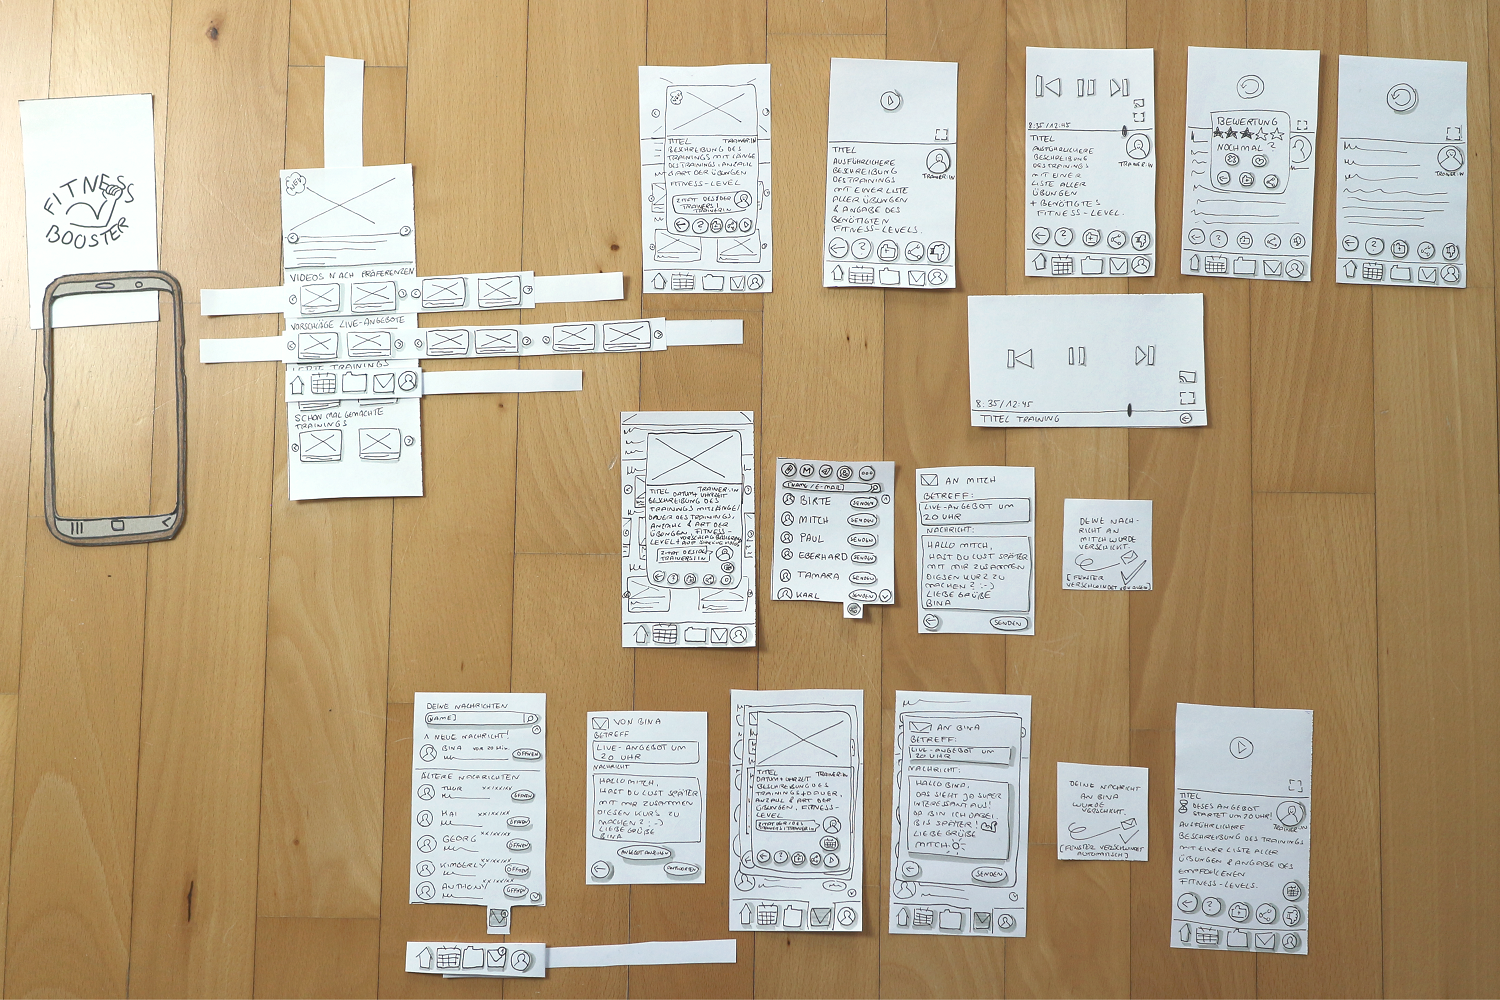 FITNESS
BOOSTER
NEU
VIDEOS NACH PRÄFERENZEN
VORSCHLÄGE LIVE-ANGEBOTE
TRAININGS
SCHON MAL GEMACHTE
TRAININGS
TITEL TRAINER:IN
BESCHREIBUNG DES
TRAININGS MIT LÄNGE
DES TRAININGS, ANZAHL
& ART DER ÜBUNGEN
FITNESS-LEVEL
ZITAT DES/DER
TRAINERS/
TRAINERIN
TITEL
TRAINER:IN
AUSFÜHRLICHERE
BESCHREIBUNG
DES TRAININGS
MIT EINER LISTE
ALLER ÜBUNGEN
& ANGABE DES
BENÖTIGTEN
FITNESS-LEVELS.
8:35/12:45
TITEL
TRAINER:IN
AUSFÜHRLICHERE
BESCHREIBUNG
DES TRAININGS
MIT EINER
LISTE ALLER
ÜBUNGEN
+ BENÖTIGTES
FITNESS-LEVEL.
BEWERTUNG
NOCHMAL?
TRAINER:IN
8:35/12:45
TITEL TRAINING
TITEL TRAINER:IN
DATUM + UHRZEIT
BESCHREIBUNG DES
TRAININGS MIT LÄNGE/
DAUER DES TRAININGS,
ANZAHL & ART DER
ÜBUNGEN, FITNESS-
LEVEL +
ZITAT DES/DER
TRAINERS/IN
[NAME/E-MAIL]
BIRTE SENDEN
MITCH SENDEN
PAUL SENDEN
EBERHARD SENDEN
TAMARA SENDEN
KARL SENDEN
AN MITCH
BETREFF:
LIVE-ANGEBOT UM
20 UHR
NACHRICHT:
HALLO MITCH,
HAST DU LUST SPÄTER
MIT MIR ZUSAMMEN
DIESEN KURZ ZU
MACHEN? :-)
LIEBE GRÜßE
BINA
SENDEN
DEINE NACH-
RICHT AN
MITCH WURDE
VERSCHICKT.
[FENSTER
VERSCHWINDET VON ALLEIN]
DEINE NACHRICHTEN
[NAME]
1 NEUE NACHRICHT!
BINA VOR 20 MIN. ÖFFNEN
ÄLTERE NACHRICHTEN
THOR XX/XX/XX
ÖFFNEN
MAI XX/XX/XX
ÖFFNEN
GEORG XX/XX/XX
ÖFFNEN
KIMBERLY XX/XX/XX
ÖFFNEN
AUTHONY XX/XX/XX
ÖFFNEN
VON BINA
BETREFF
LIVE-ANGEBOT UM
20 UHR
NACHRICHT
HALLO MITCH,
HAST DU LUST SPÄTER
MIT MIR ZUSAMMEN
DIESEN KURS ZU
MACHEN? :-)
LIEBE GRÜßE
BINA
ANGEBOT ANSEHEN
ANTWORTEN
TITEL TRAINER:IN
DATUM + UHRZEIT
BESCHREIBUNG DES
TRAININGS + DAUER,
ANZAHL & ART DER
ÜBUNGEN, FITNESS-
LEVEL
AN BINA
BETREFF:
LIVE-ANGEBOT UM
20 UHR
NACHRICHT:
HALLO BINA,
DAS SIEHT JA SUPER
INTERESSANT AUS!
DA BIN ICH DABEI.
BIS SPÄTER!
LIEBE GRÜßE
MITCH
SENDEN
DEINE NACHRICHT
AN BINA
WURDE
VERSCHICKT.
[FENSTER VERSCHWINDET
AUTOMATISCH]
TITEL
DIESES ANGEBOT
STARTET UM 20 UHR!
TRAINER:IN
AUSFÜHRLICHERE
BESCHREIBUNG DES TRAININGS
MIT EINER LISTE ALLER
ÜBUNGEN & ANGABE DES
EMPFOHLENEN
FITNESS-LEVELS.